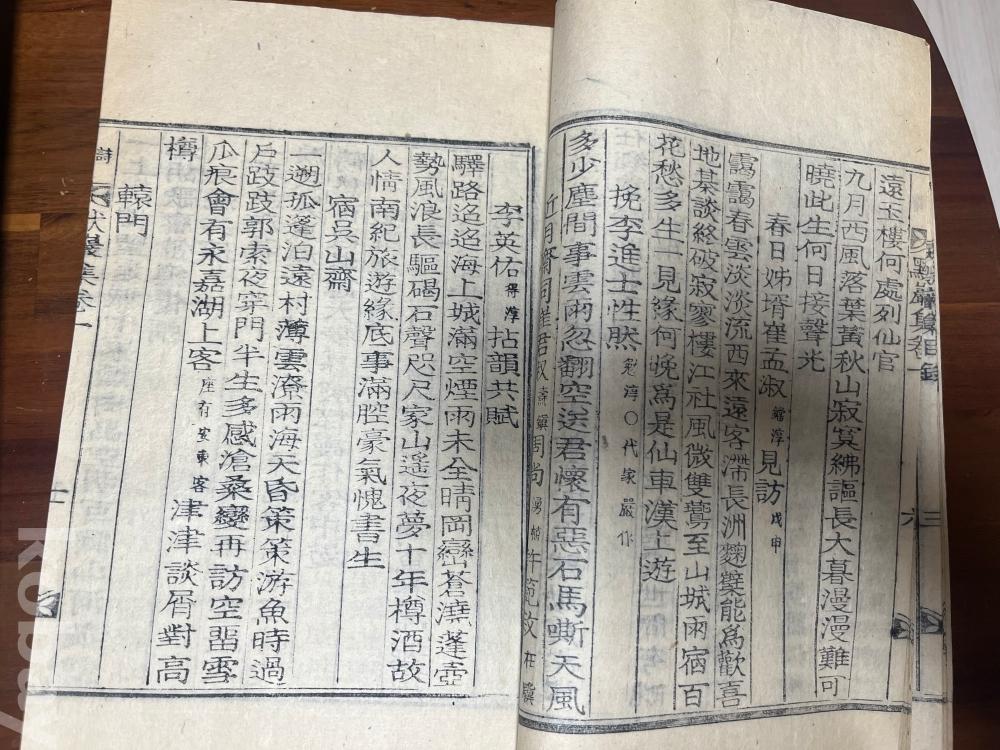 遠玉樓何處列仙官
九月西風落葉黃秋山寂寞紼謳長大暮漫漫難可
曉此生何日接聲光
春日姊壻崔孟淑見訪戊申
靄靄春雲淡淡流西來遠客滯長洲麴糱能爲歡喜
地棊談終破寂寥樓江社風微雙鷰至山城雨宿百
花愁多生一見緣何晚爲是仙車漢上遊
挽李進士性然 ○代家嚴作
多少塵間事雲雨忽翻空送君懷有惡石馬嘶天風
李英佑得淳拈韻共賦
驛路迢迢海上城滿空煙雨未全晴岡巒蒼湊蓬壺
勢風浪長驅碣石聲咫尺家山遙夜夢十年樽酒故
人情南紀旅遊緣底事滿腔豪氣愧書生
宿吳山齋
一遡孤篷泊遠村薄雲潦雨海天昏策策游魚時過
戶跂跂郭索夜穿門半生多感滄桑變再訪空留雪
瓜痕會有永嘉湖上客座有安東客津津談屑對高
樽
轅門
詩
卷一
Kobay